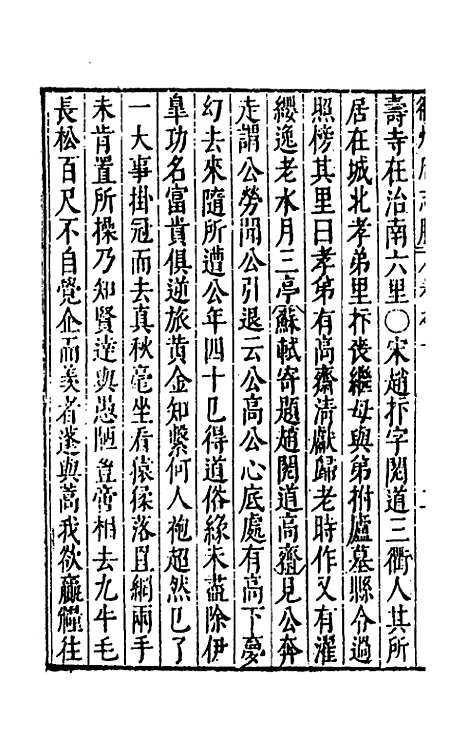 壽寺在治南六里〇宋趙抃字閱道三衢人其所
居在城北孝弟里抃喪繼母與弟拊廬墓縣令過
照傍其里曰孝弟有高齋清獻歸老時作又有濯
纓逸老水月三亭蘇軾寄題趙閱道高齋見公奔
走謂公勞聞公引退云公高公心底處有高下夢
幻去來隨所遭公年四十巳得道俗緣未盡除伊
臯功名富貴俱逆旅黄金知繫何人袍超然巳了
一大事掛冠而去真秋毫坐看猿猱落罝網兩手
未肯置所操乃知賢達與愚陋豈啻相去九牛毛
長松百尺不自覺企而羡者蓬與蒿我欲贏糧往